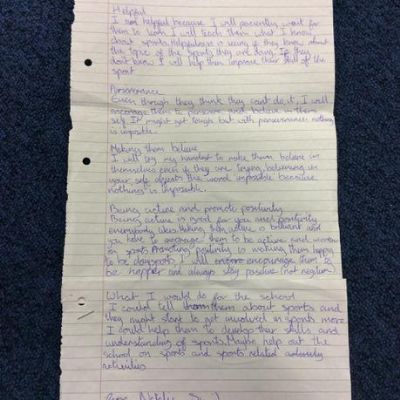 Helpful
I am helpful because I will patiently wait for
them to learn I will teach them what I know
about sports. Helpfulness is seeing if they know about
the topic of the sports they are doing. If they
don't know I will help them improve their skill of the
sport
Perserverance
Even though they think they cant do it, I will
encourage them to persevere and believe in them
self. It might get tough but with perserverance nothing
is impossible.
Making them believe
I will try my hardest to make them believe in
themselves even if they are trying, believing in
your self defeats the word impossible because
nothing is impossible.
Being active and promote positivity
Being active is good for you and positivity
everybody likes. Making them active is brilliant and
you have to encourage them to be active and
in sports. Promoting positivity is making them happy
to be I will encourage them to
be happier and always stay positive (not negative)
What I would do for the school
I could tell them about sports and
they might start to get involved in sports more
I could help them to develop their skills and
understanding of sports. Maybe help out the
school on sports and sports related
activities